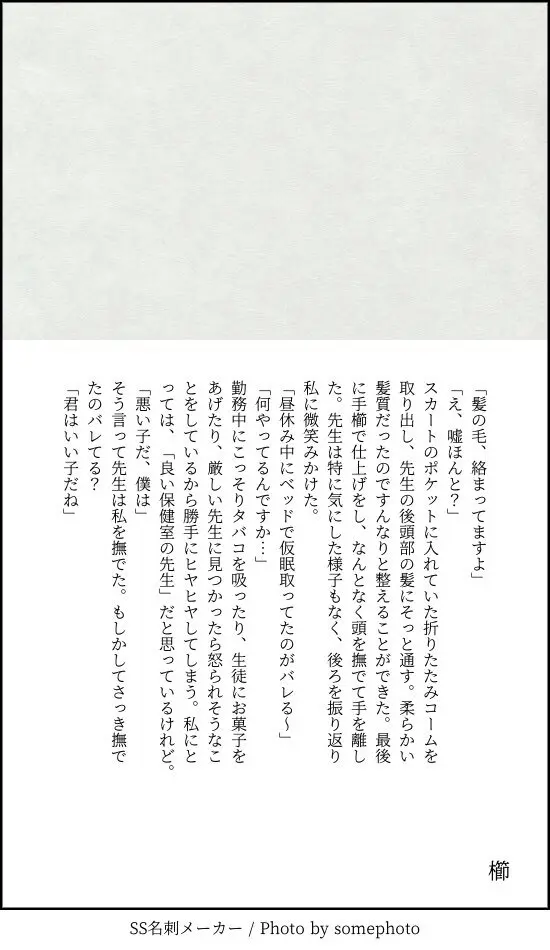 「髪の毛、絡まってますよ」
「え、嘘ほんと？」
スカートのポケットに入れていた折りたたみコームを
取り出し、先生の後頭部の髪にそっと通す。柔らかい
髪質だったのですんなりと整えることができた。最後
に手櫛で仕上げをし、なんとなく頭を撫でて手を離し
た。先生は特に気にした様子もなく、後ろを振り返り
私に微笑みかけた。
「昼休み中にベッドで仮眠取ってたのがバレる〜」
「何やってるんですか…」
勤務中にこっそりタバコを吸ったり、生徒にお菓子を
あげたり、厳しい先生に見つかったら怒られそうなこ
とをしているから勝手にヒヤヒヤしてしまう。私にと
っては、「良い保健室の先生」だと思っているけれど。
「悪い子だ、僕は」
そう言って先生は私を撫でた。もしかしてさっき撫で
たのバレてる？
「君はいい子だね」
櫛
SS名刺メーカー / Photo by somephoto